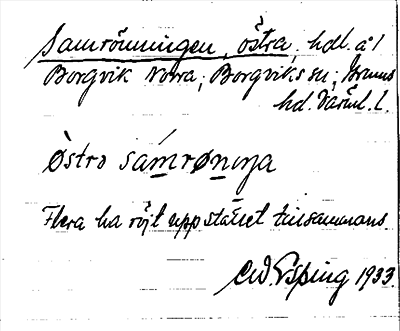 Samrönningen, östra, hdl. å 1
Borgvik Norra; Borgviks sn; Grums
hd. Värml. l.
Östra sámrønıŋa
Flera ha röjt upp stället tillsammans.
C.W. Esping 1933.